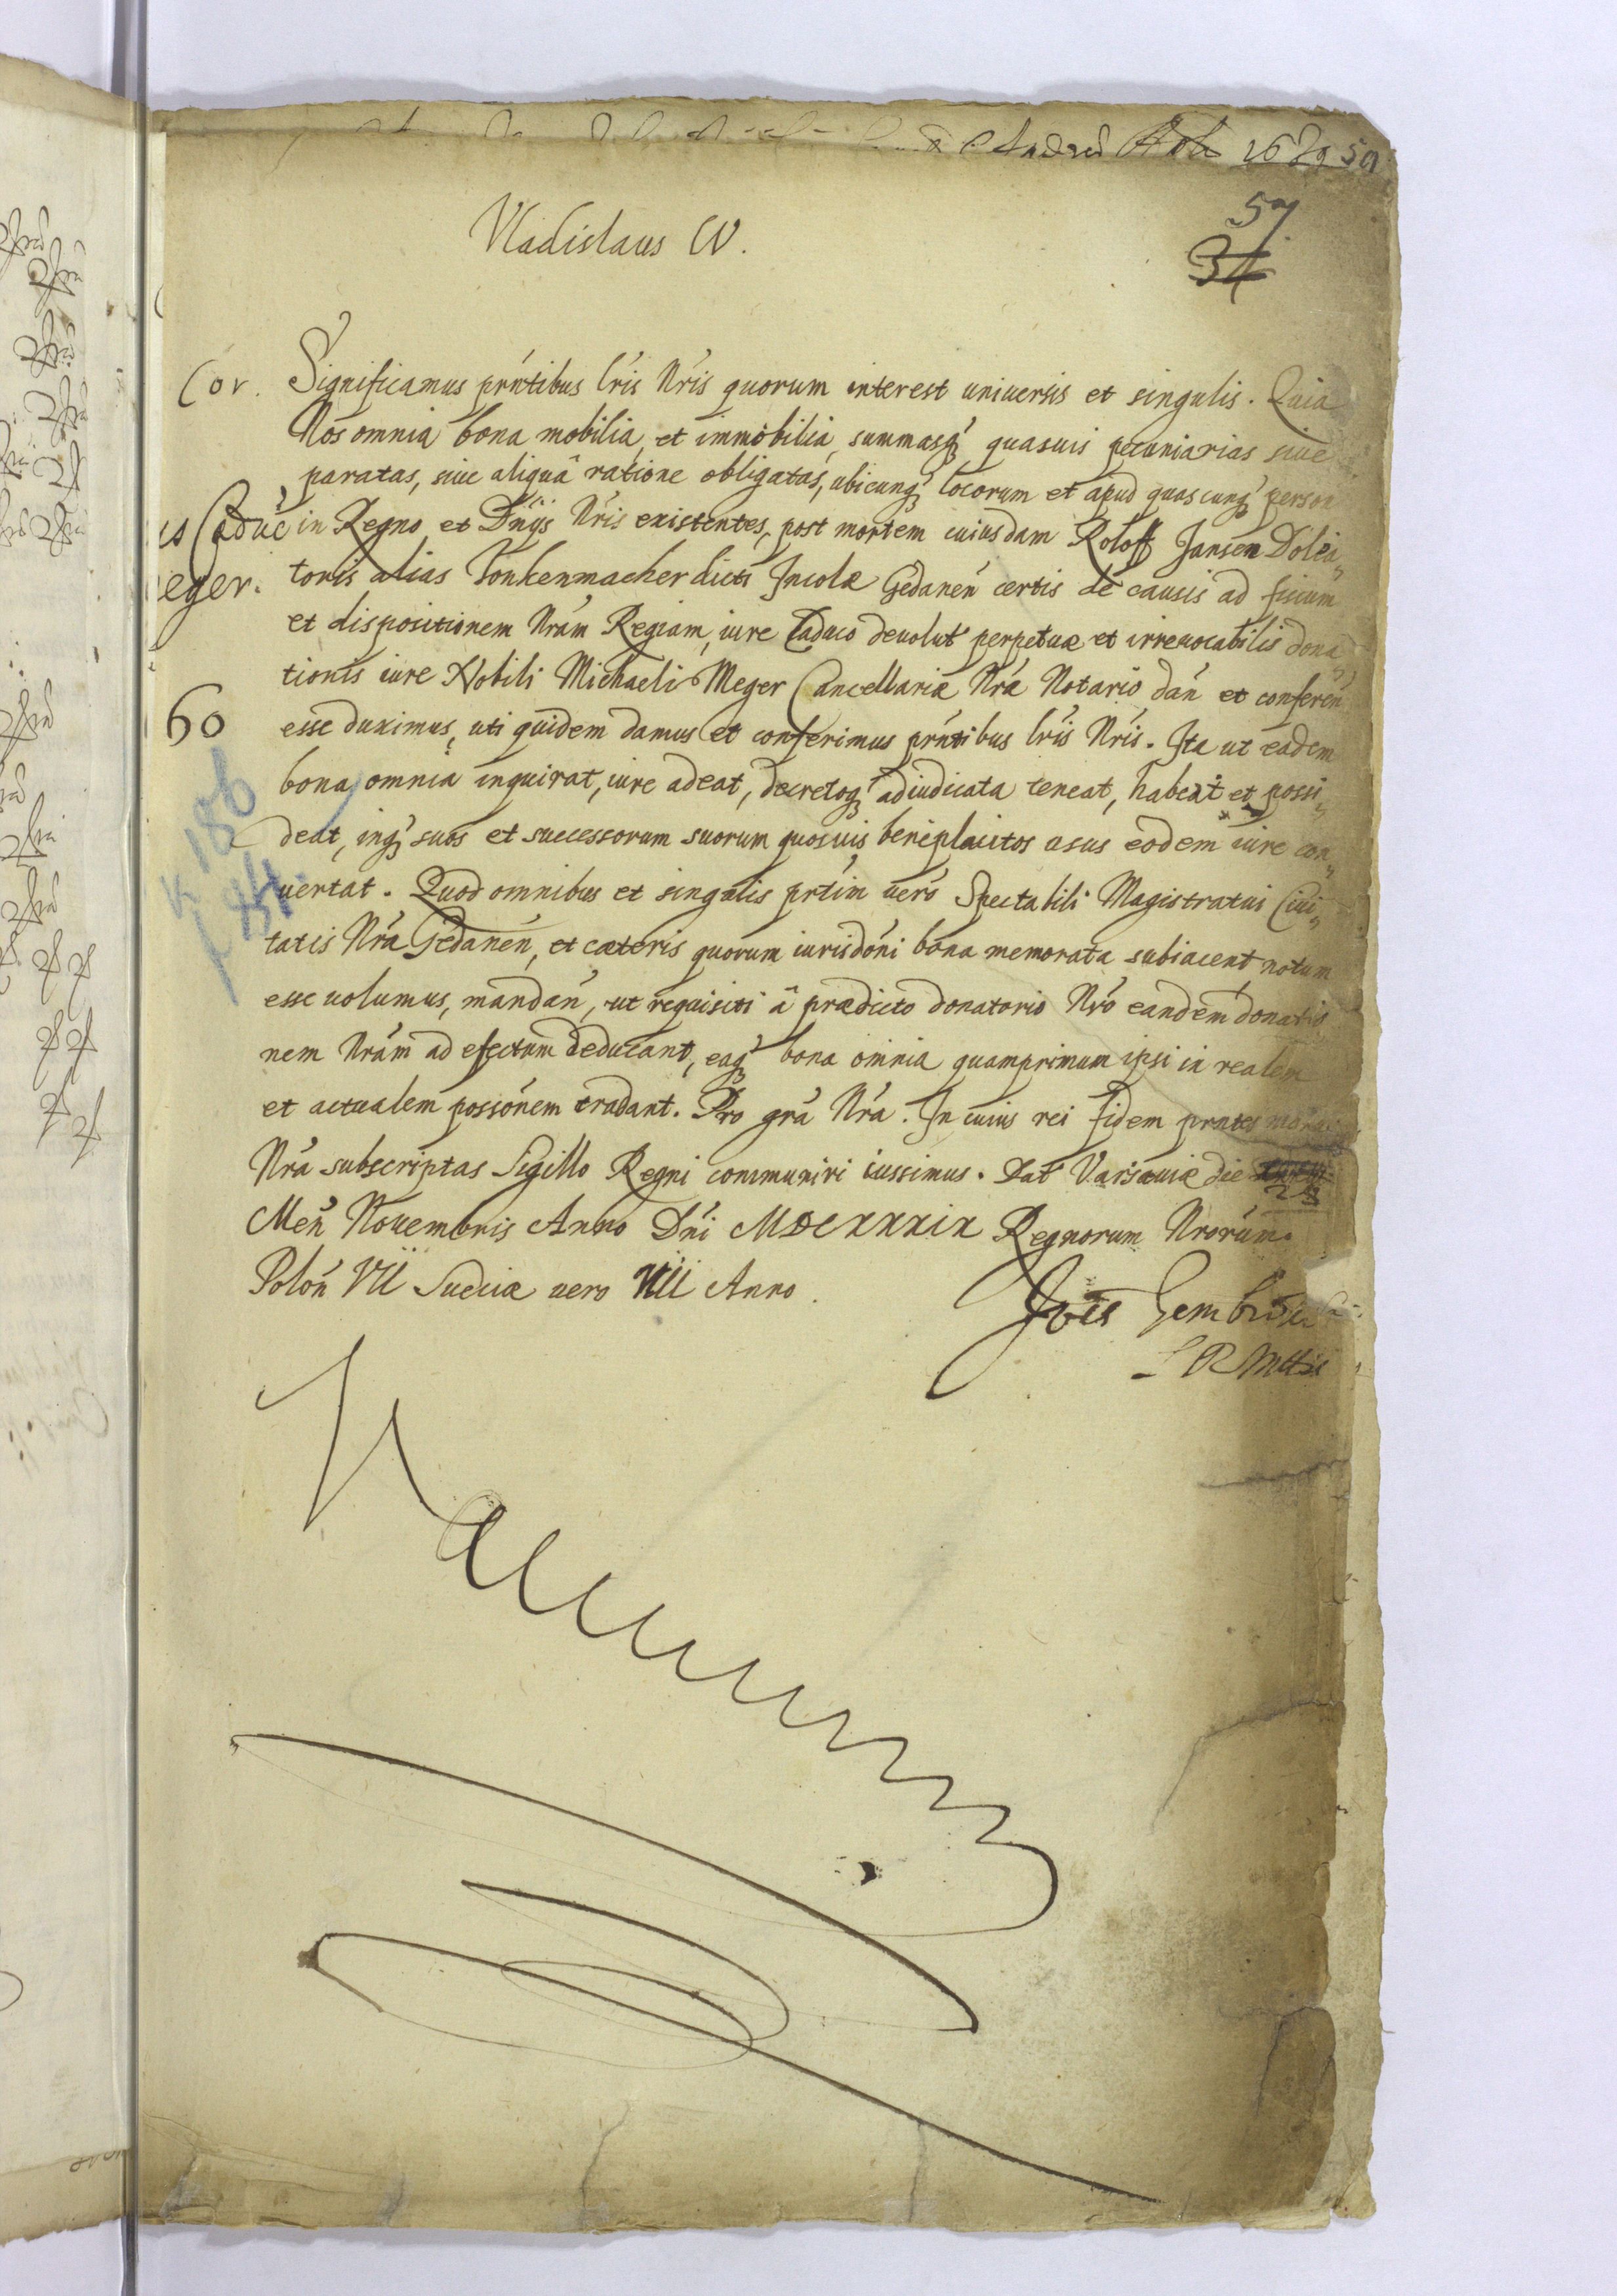 1639 59
57
34
Vladislaus IV.
Cor. Significamus prńtibus lŕis Nŕis quorum interest uniuersis et singulis. Quia
Nos omnia bona mobilia et immobilia, summasq́ quasuis pecuniarias siue
paratas, siue aliquâ ratione obligatas, ubicunq́ locorum et apud quascunq́ person
Caduć in Regno et Dńijs Nŕis existentes, post mortem cuiusdam Roloff Jansen Dolia„
eger. toris alias Tonkenmacher dicti Incolæ Gedaneń certis de causis ad fiscum
et dispositionem Nŕam Regiam, iure Caduco deuolut́ perpetuæ et irreuocabilis dona„
tionis iure Nobili Michaeli Meger Cancellariæ Nŕæ Notario dań et confereń
60 esse duximus, uti quidem damus et conferimus prńtibus lŕis Nŕis. Ita ut eadem
bona omnia inquirat, iure adeat, decretoq́ adiudicata teneat, habeat et possi„
186
deat, inq́ suos et successorum suorum quosuis beneplacitos usus eodem iure con„
uertat. Quod omnibus et singulis prt́im uero Spectabili Magistratui Ciui„
tatis Nŕæ Gedaneń, et cæteris quorum iurisdońi bona memorata subiacent notum
esse uolumus, mandań, ut requisiti â prædicto donatorio Nŕo eandem donatio
nem Nŕam ad efectum deducant, eaq́ bona omnia quamprimum ipsi in realem
et actualem possiońem tradant. Pro gŕa Nŕa. In cuius rei fidem prntes manu
Nŕa subscriptas Sigillo Regni communiri iussimus. Dat́ Varsauiæ die 23
Meń Nouembris Anno Dńi MDCXXXIX Regnorum Nrorum
Poloń VII Sueciæ uero VIII Anno.